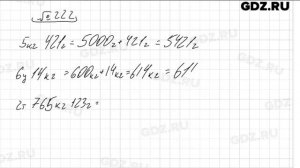 GDZ.RU
№222
5кг 421г = 5000г + 421г = 5421г
6ц 14кг = 600кг + 14кг = 614кг = 611
2т 765кг 123г =